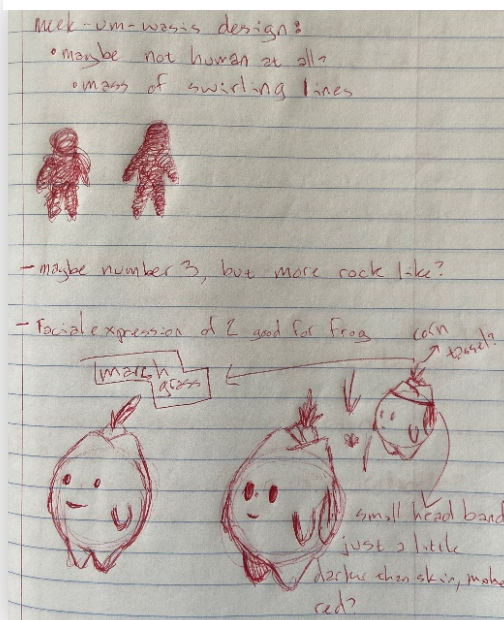 meek-um-wasis design:
• maybe not human at all
• mass of swirling lines
- maybe number 3, but more rock like?
- Facial expression of 2 good for frog
corn
tassel?
marsh
grass
small head band
just a little
darker than skin, make
red?